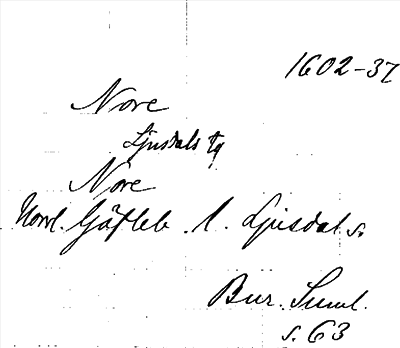 1602-37
Nore
Ljusdals tg
Nore
Norrl. Gäfleb. l. Ljusdal s.
Bur. Suml.
s. 63